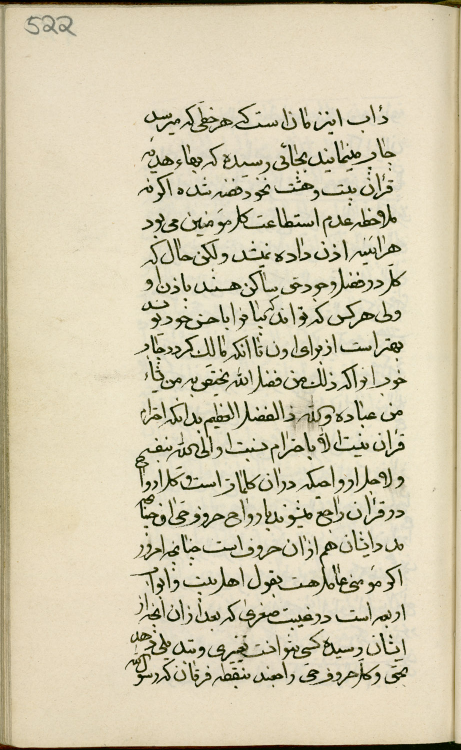 522
دأب این زمان است که هر خطی که میرسد
چاپ مینمایند بجائی رسیده که بهاء هدیه
قران بیست و هشت نخود فضه شده اگر نه
ملاحظه عدم استطاعت کل مؤمنین می بود
هر اینه اذن داده نمیشد ولکن حال که
کل در فضل وجود حق ساکن هستند باذن او
ولی هر کس که تواند کتاب خدا با حسن خود بود
بهتر است از برای اون تا انکه مالک گردد چاپ
خوب انرا که ذلک من فضل الله یختص به من یشاء
من عباده والله ذالفضل العظیم بدانکه احترام
قران نیست الا باحترام نسبت او الی الله بنفسه
و لاجل ارواحیکه در ان کلمات است و کل ارواح
در قران راجع میشوند بارواح حروف حی او چنانچه
مد ایشان هم از ان حروف است چنانچه امروز
اگر مؤمنی عامل هست بقول اهل بیت و ابواب
اربعه است در غیبت صغری که بعد از ان انچه از
ایشان رسیده کسی نتوانست تغییری و تبدیلی دهد
بحق و کل حروف حی راجعند بنقطه فرقان که رسول الله